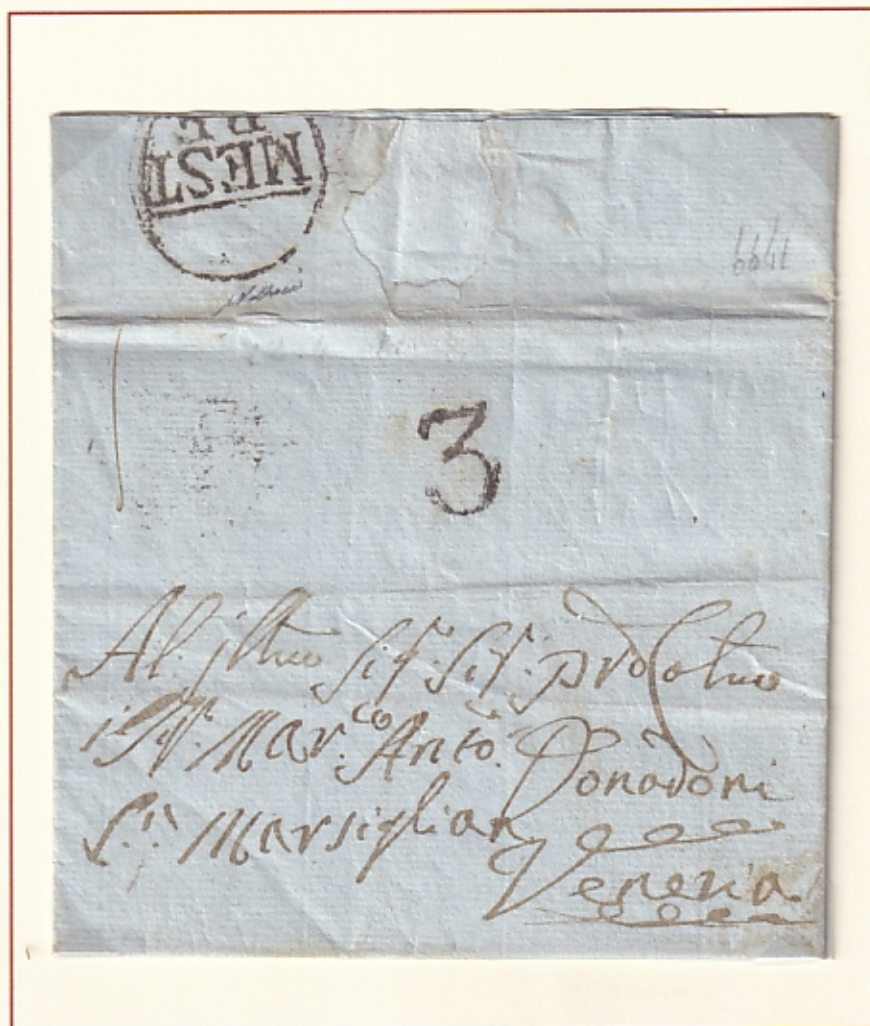 MEST
RE
1799
3
Al: jlmo Sig.r Sig.r Pro Colmo
il Sig.r Mar.co Anto. Donadoni
S.n Marsiglian
Venezia